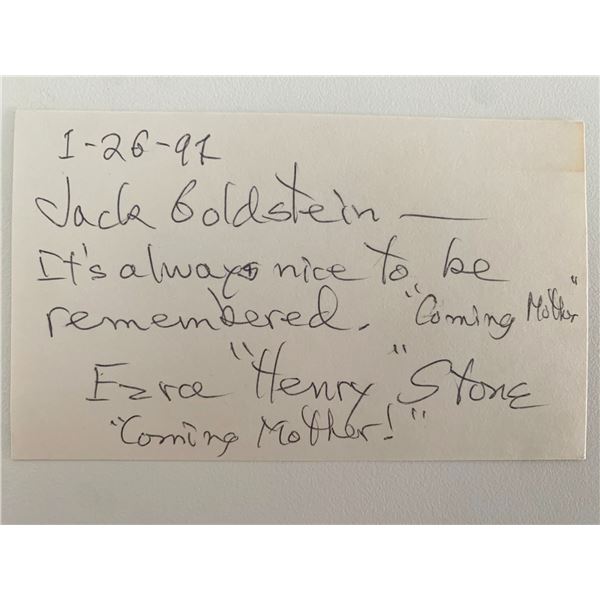 1-26-91
Jack Goldstein —
It's always nice to be
remembered. "Coming Mother"
Ezra "Henry" Stone
"Coming Mother!"